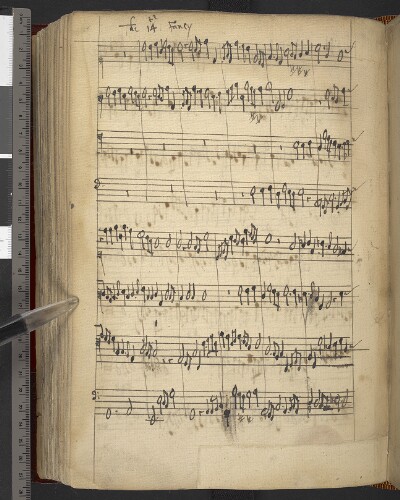 the 14 fancy